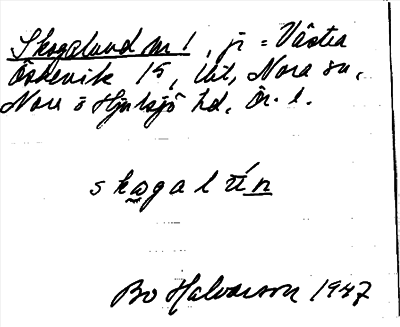 Skogalund nr 1, j = Västra
Öskevik 15, lht, Nora sn,
Nora o Hjulsjö hd, Ör. l.
skogalún
Bo Halvarson 1947